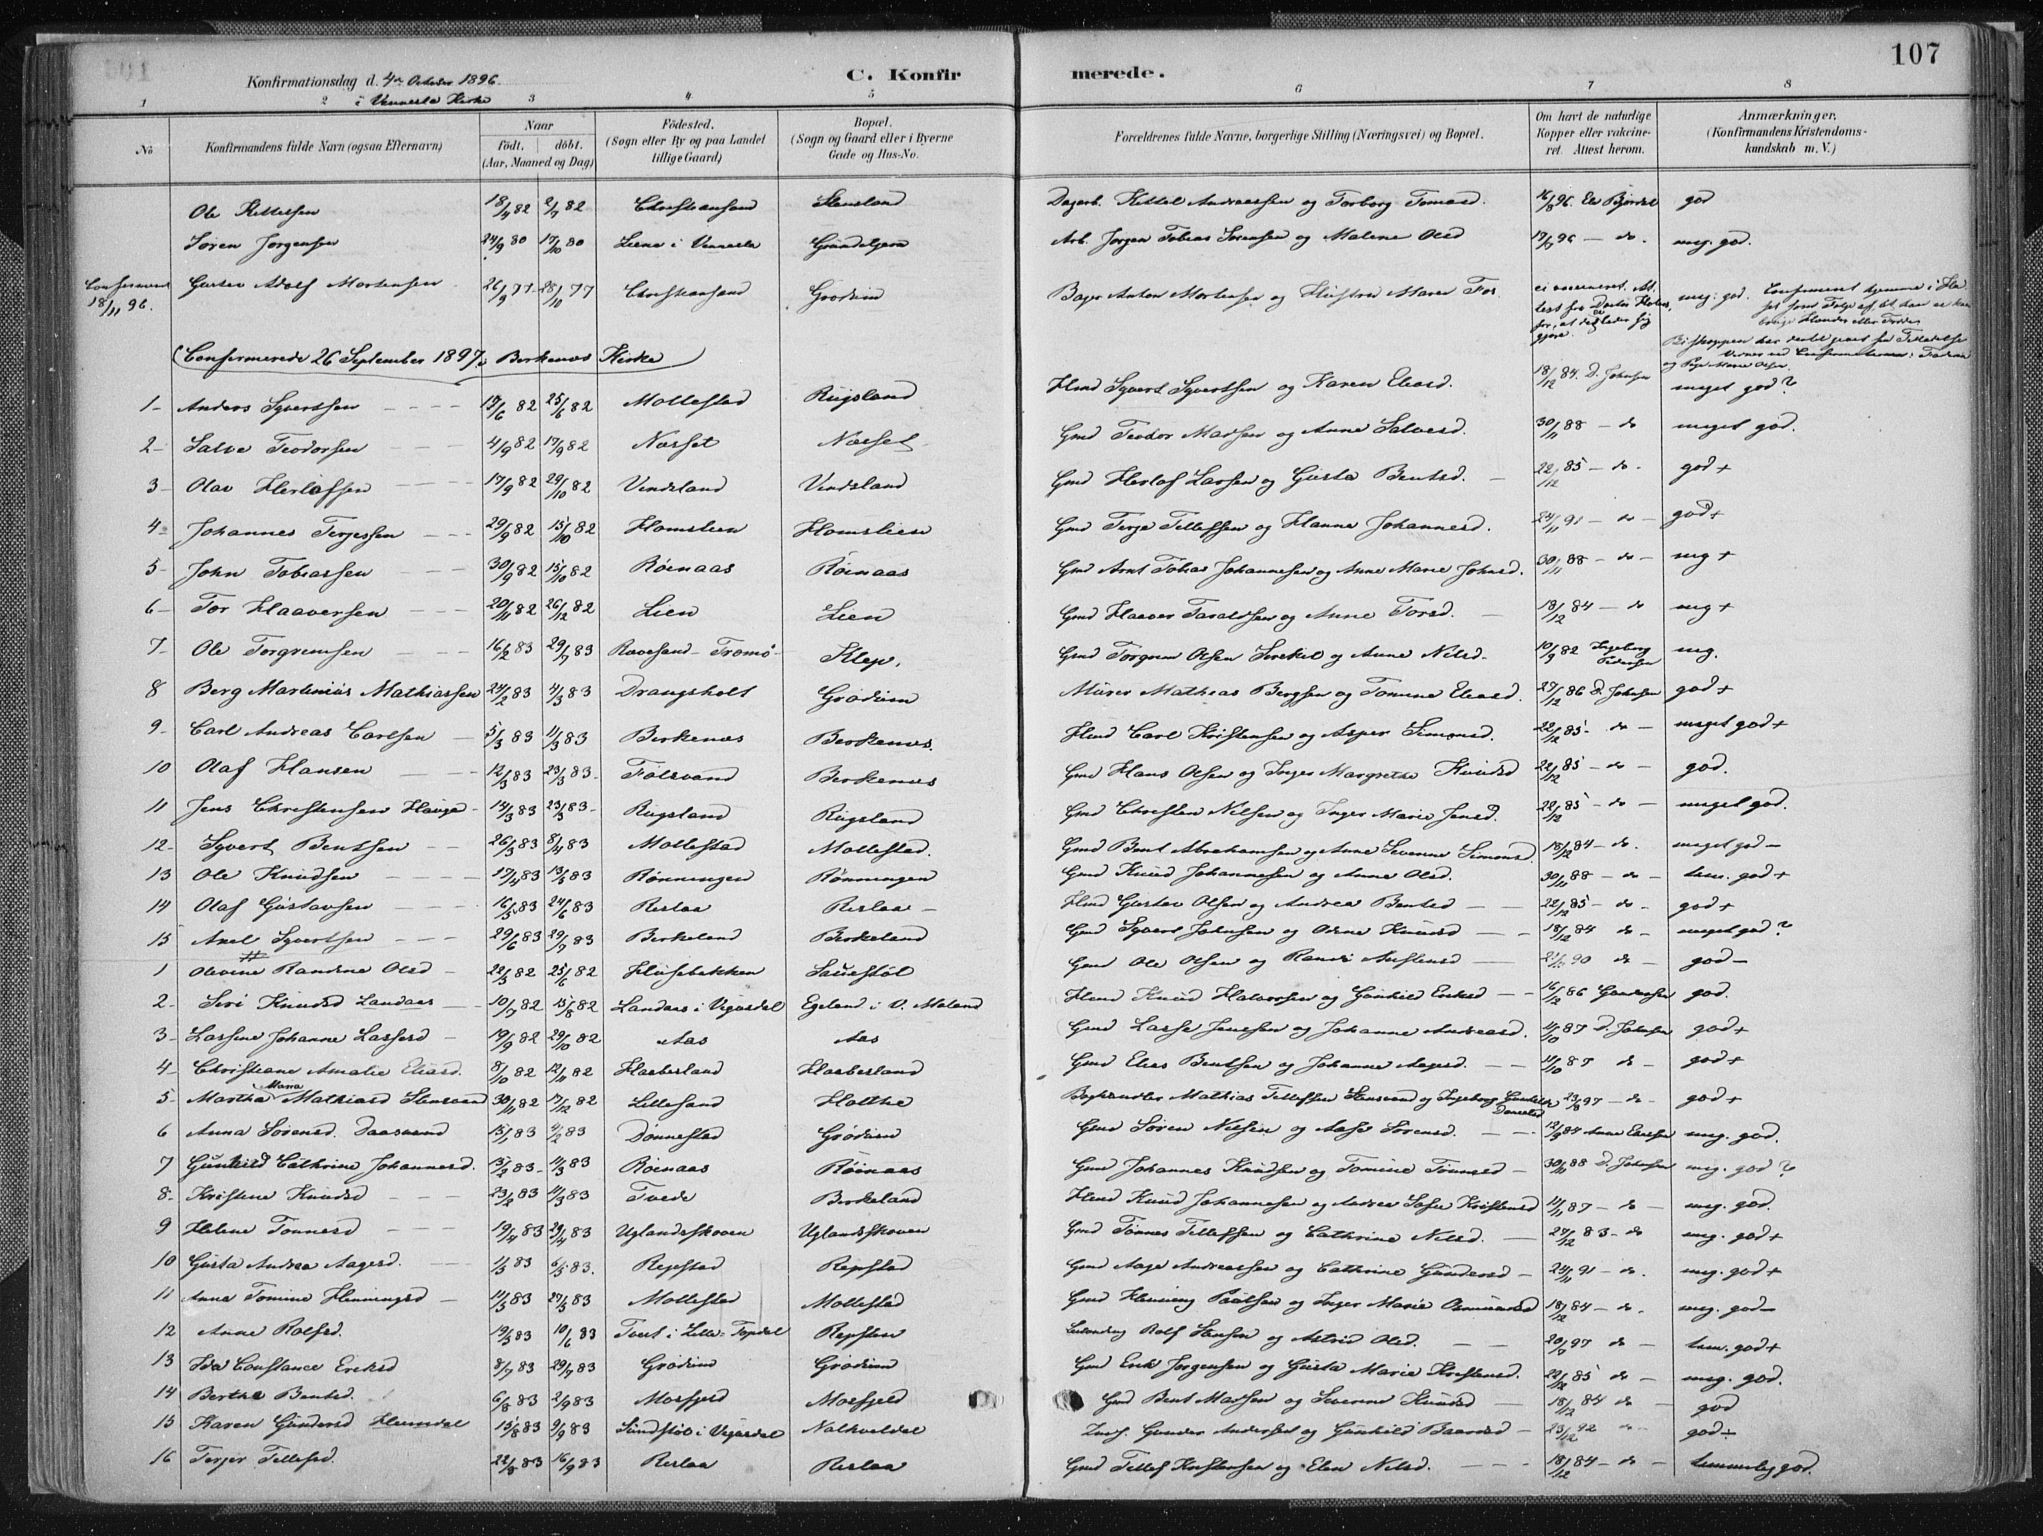 107
Konfirmationsdag d. 4de October 1896
i Vennesla Kirke
C. Konfirmerede.
1 2 3 4 5 6 7 8
No
Konfirmandens fulde Navn (ogsaa Efternavn)
Naar
födt. döbt.
(Aar, Maaned og Dag)
Födested.
(Sogn eller By og paa Landet
tillige Gaard)
Bopæl.
(Sogn og Gaard eller i Byerne
Gade og Hus-No.
Forældrenes fulde Navne, borgerlige Stilling (Næringsvei) og Bopæl.
Om havt de naturlige
Kopper eller vakcine-
ret. Attest herom.
Anmærkninger.
(Konfirmandens Kristendoms-
kundskab m. V.)
Ole Kittelsen 18/4 82 2/7 82 Christiansand Stensland Dagarb. Kittel Andreassen og Torborg Tomasd. 16/8 96. god
Søren Jorgensen 24/9 80 17/10 80 i Vennesla Arb. Jorgen Tobias Sorensen og Malene Olsd 17/9 96 - do. meg. god.
Confirmeret 18/11 96. Gustav Adolf Mortensen 26/9 77 28/10 77 Christiansand Grodum Bager Anton Mortensen og Hustru Maren meg. god.
(Confirmerede 26 September 1897 i Berkenes Kirke)
1 - Anders Syvertsen 19/6 82 25/6 82 Mollestad Rugsland Hmd Syvert Syvertsen og Karen Eliasd. 18/12 84. D. Johnsen meget god?
2 - Salve Teodorsen 4/9 82 17/9 82 Næsset Næsset Gmd Teodor Madsen og Anne Salvesd. 30/11 88 - do meget god.
3 - Olav Herlofsen 17/9 82 29/10 82 Vindsland Vindsland Gmd Herlof Larsen og Gusta Bentsd. 22/12 85 - do - god +
4 - Johannes Terjessen 29/9 82 15/10 82 Homslien Homslien Gmd Terje Tellefsen og Hanne Johannesd. 24/11 91 - do - god +
5 - John Tobiassen 30/9 82 15/10 82 Røinaas Røinaas Gmd Arnt Tobias Johannesen og Anne Marie Johnsd. 30/11 88 - do - mg +
6 - Tor Haaversen 20/11 82 26/12 82 Lien Lien Gmd Haaver Taraldsen og Anne Torsd. 18/12 84 - do mg +
7 - Ole Torgrimsen 16/2 83 29/7 83 Ravesand - Tromö Klep. Gmd Torgrim Olsen og Anne Nilsd. 10/9 82 Ingeborg Pedersen mg.
8 Berg Martinius Mathiassen 24/2 83 4/3 83 Drangsholt Grodum Murer Mathias Bergsen og Tomine Eliasd. 27/12 86 D. Johnsen god +
9 - Carl Andreas Carlsen 5/3 83 11/3 83 Birkenæs Berkenæs. Hmd Carl Kristensen og Asper Simonsd. 22/12 85 - do - meget god +
10 Olaf Hansen 12/3 83 23/3 83 Berkenæs Gmd Hans Olsen og Inger Margrethe Knudsd 22/12 85 - do - god.
11 Jens Christensen Hauge 14/3 83 23/3 83 Rugsland Rugsland Gmd Christen Nilsen og Inger Marie Jensd. 22/12 85 - do - meget god.
12 - Syvert Bentsen 26/3 83 8/4 83 Mollestad Mollestad. Gmd Bent Abrahamsen og Anne Severine Simonsd. 18/12 84 - do. meget god -
13 Ole Knudsen 17/4 83 13/5 83 Rønningen Rønningen Gmd Knud Johannesen og Anne Olsd. 30/11 88 - do - tem. god +
14 Olaf Gustavsen 16/5 83 24/6 83 Reslaa Reslaa - Hmd Gustav Olsen og Andrea Bentsd 22/12 85 - do. god +
15 Axel Syvertsen 29/6 83 29/7 83 Birkeland Birkeland Gmd Syvert Johnsen og Knudsd 18/12 84 do - meget god?
1 Olevine Randine Olsd 22/5 82 25/6 82 Husebekken Saustøl Gmd Ole Olsen og Randi 90 do - god -
2 - Siri Knudsd Landaas 10/7 82 15/8 82 Landaas i Vegusdal Egeland i V. Moland Hmd Knud Halvorsen og Gunhild Eriksd - 16/12 86 Gundersen god.
3 - Lassine Johanne Lassesd 19/9 82 29/10 82 Aas Aas Gmd Lasse Jensen og Johanne Andreasd. 4/10 87 D. Johnsen god +
4 - Christiane Amalie Eliasd. 8/10 82 12/11 82 Haaberland Haaberland Gmd Elias Bentsen og Johanne Aagesd. 11/10 87 do - god +
5 - Martha Maria Mathiasd Stensvand 30/11 82 17/12 82 Lillesand Holthe Boghandler Mathias Tellefsen Stensvand og Ingeborg Gunhilde Danielsd 23/8 97 - do - god +
6 Anna Sørensd. Daasvand 15/1 83 4/2 83 Dønnestad Grødum Gmd Søren Nilsen og Aase Sorensd. 12/9 84 Anne Larsen mg. god.
7 Gunhild Cathrine Johannesd. 13/2 83 11/3 83 Røinaas Røinaas Gmd Johannes Knudsen og Tomine Tomasd - 30/11 88 D. Johnsen mg. god?
8 - Kristene Knudsd 23/2 83 11/3 83 Tvede Birkeland Hmd Knud Johannesen og Andrea Sofie Kristensd 14/11 87 - do - mg. god.
9 Helene Tonnesd 19/4 83 29/4 83 Uglandsskoven Uglandsskoven Gmd Tønnes Tellefsen og Cathrine Nilsd. - 27/12 83 - do mg. god +
10 Gusta Andrea Aagesd. 1/5 83 6/5 83. Repstad Repstad Gmd Aage Andreassen og Cathrine Gundersd - 24/11 91 - do. mg. god +
11 Anna Tomine Henningsd 11/5 83 27/5 83 Mollestad Mollestad Gmd Henning Paulsen og Inger Marie 18/12 84 - do. mg. god -
12 Anne Rolfsd. 19/5 83 10/6 83 Tveit i Lille-Topdal Repsten Rolf og Astrid Olsd. 20/9 97 do - tem. god +
13 Ida Constance Eriksd 8/7 83 29/7 83 Grødum Grødum Gmd Erik Jorgensen og Gusta Marie Kristensd. 22/12 85 do mg. god.
14 Berthe Bentsd. 6/8 83 2/9 83 Mosfjeld Mosfjeld Gmd Bent Madsen og Severine Knudsd - 18/12 84 do god
15 Karen Gundersd Humdal 15/8 83 9/9 83 Sundstøl i Vegusdal Nalkveldal Gunder Andersen og Gunhild Baardsd 23/12 92 do god ÷
16 Terjer Tellefsd. 22/8 83 16/9 83 Reslaa Reslaa Gmd Tellef Kristensen og Elen Nilsd. 18/12 84 - do temmelig god.